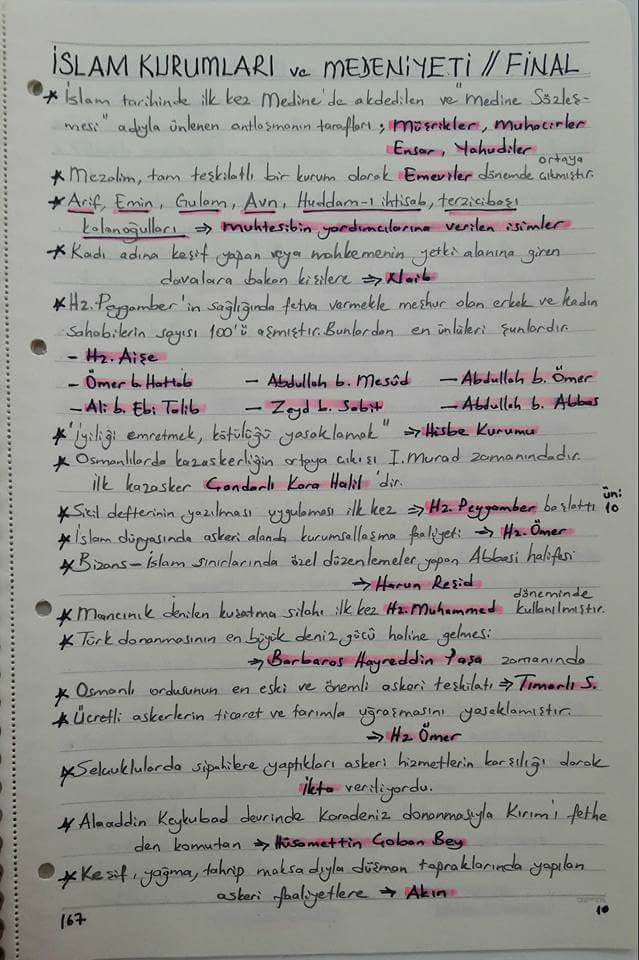 İSLAM KURUMLARI ve MEDENİYETİ // FİNAL
* İslam tarihinde ilk kez Medine'de akdedilen ve "Medine Sözleş-
mesi" adıyla ünlenen antlaşmanın tarafları; Müşrikler, Muhacirler
Ensar, Yahudiler
* Mezalim, tam teşkilatlı bir kurum olarak Emeviler dönemde ortaya çıkmıştır.
* Arif, Emin, Gulam, Avn, Huddam-ı ihtisab, terzicibaşı
kolonoğulları → muhtesibin yardımcılarına verilen isimler
* Kadı adına keşif yapan veya mahkemenin yetki alanına giren
davalara bakan kişilere → Naib
* Hz. Peygamber'in sağlığında fetva vermekle meşhur olan erkek ve kadın
sahabilerin sayısı 100'ü aşmıştır. Bunlardan en ünlüleri şunlardır.
- Hz. Aişe
- Ömer b. Hattab - Abdullah b. Mesûd - Abdullah b. Ömer
- Ali b. Ebi Talib - Zeyd b. Sabit - Abdullah b. Abbas
* "iyiliği emretmek, kötülüğü yasaklamak" → Hisbe Kurumu
* Osmanlılarda kazaskerliğin ortaya çıkışı I. Murad zamanındadır.
İlk kazasker Çandarlı Kara Halil'dir.
* Sicil defterinin yazılması uygulaması ilk kez → Hz. Peygamber başlattı
üni 10
* İslam dünyasında askeri alanda kurumsallaşma faaliyeti → Hz. Ömer
* Bizans-İslam sınırlarında özel düzenlemeler yapan Abbasi halifesi
→ Harun Reşid
* Mancınık denilen kuşatma silahı ilk kez Hz. Muhammed döneminde kullanılmıştır.
* Türk donanmasının en büyük deniz gücü haline gelmesi
→ Barbaros Hayreddin Paşa zamanında
* Osmanlı ordusunun en eski ve önemli askeri teşkilatı → Tımarlı S.
* Ücretli askerlerin ticaret ve tarımla uğraşmasını yasaklamıştır.
→ Hz Ömer
* Selçuklularda sipahilere yaptıkları askeri hizmetlerin karşılığı olarak
İkta veriliyordu.
* Alaaddin Keykubad devrinde Karadeniz donanmasıyla Kırım'ı fethe
den komutan → Hüsamettin Çoban Bey
* Keşif, yağma, tahrip maksadıyla düşman topraklarında yapılan
askeri faaliyetlere → Akın
167
10